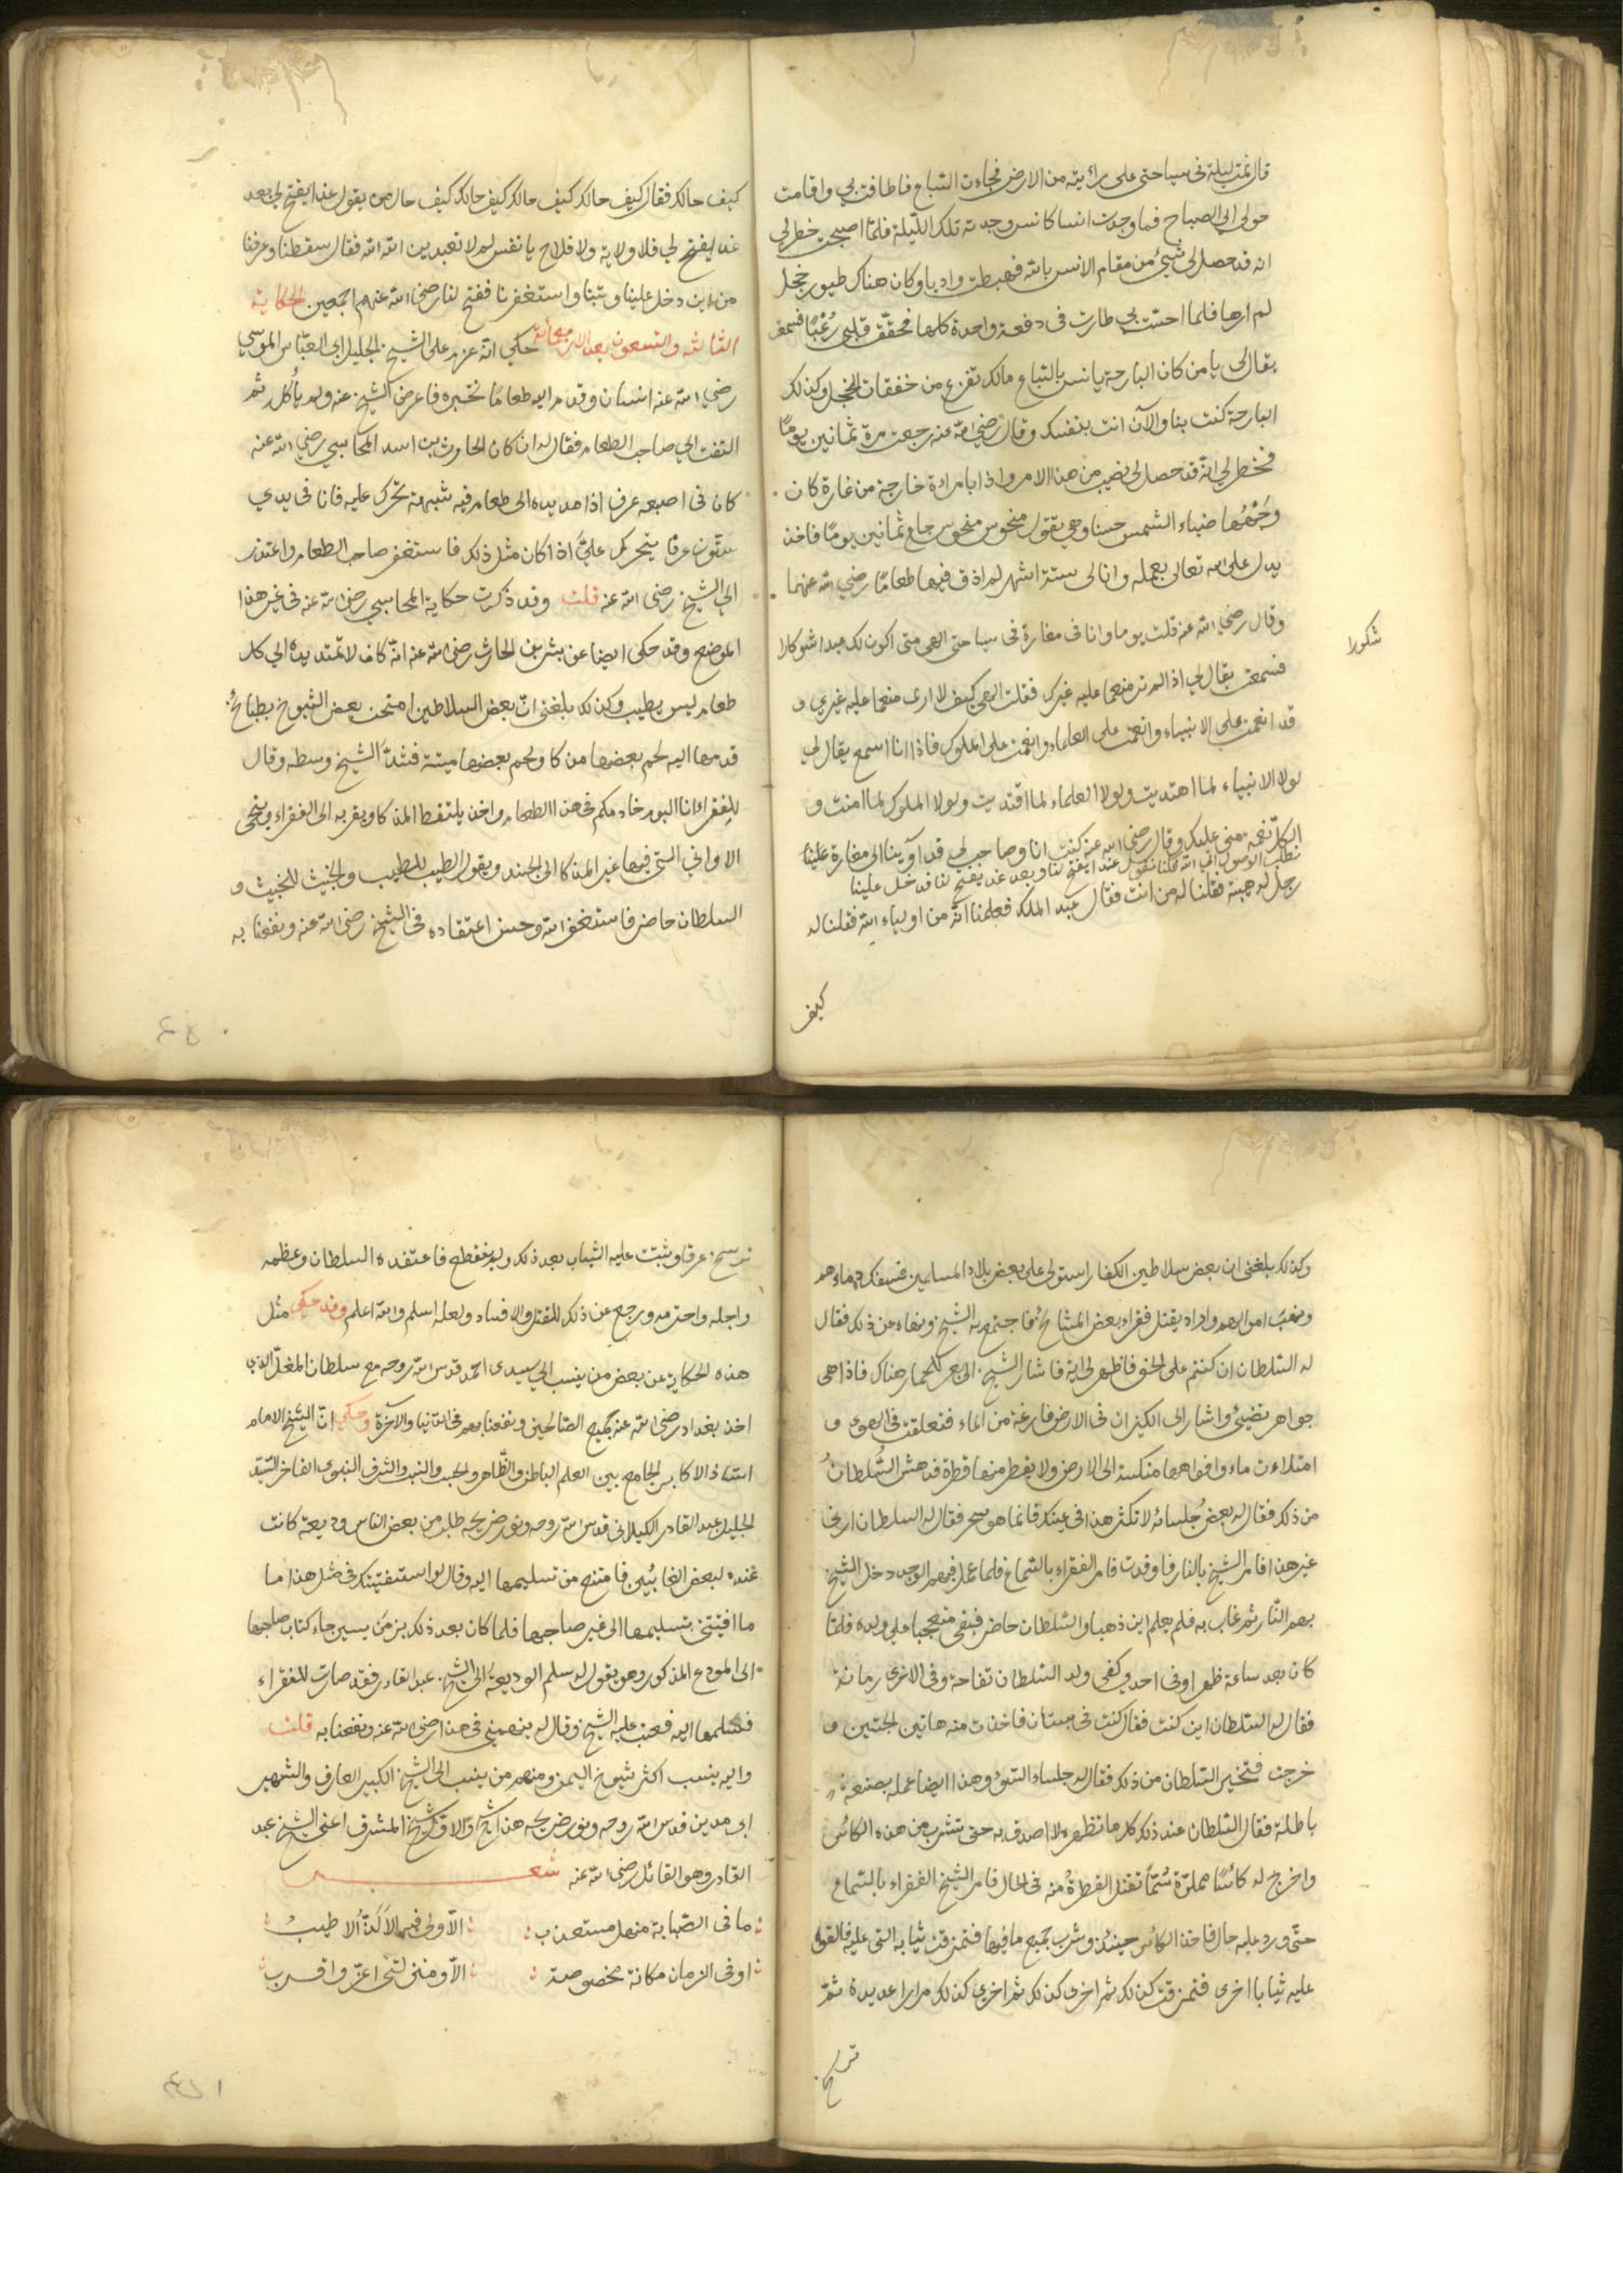 قال نمت ليلة فى سياحتى على رابية من الارض فجاءت السباع فاطافت بي واقامت
حولي الي الصباح فما وجدت انسا كانس وجدته تلك الليلة فلما اصبحت خطر لي
انه قد حصل لي شيئ من مقام الانس بالله فهبطت واديا وكان هناك طيور حجل
لم ارها فلما احست بي طارت فى دفعة واحدة كلها فخفق قلبي رُعْبًا فسمعت
يقال لى يا من كان البارحة يانس بالسباع مالك تفزع من خفقات الحجل وكن لك
البارحة كنت بنا والآن انت بنفسك وقال رضي الله عنه جعت مرة ثمانين يومًا
فخطر لي انه قد حصل لي نصيب من هذا الامر واذا بامراة خارجة من غارة كان
وَجْهُها ضياء الشمس حسنا وهي تقول منحوس منحوس جاع ثمانين يومًا فاخذ
يدل على الله تعالى بعمله وانا لى ستة اشهر لم اذق فيها طعامًا رضي الله عنهما
وقال رضي الله عنه قلت يوما وانا فى مغارة فى سياحتى الهى متى اكون لك عبدا شكورا
شكورا
فسمعت يقال لي اذا لم تر منعما عليه غيرك فقلت الهى كيف لا ارى منعما عليه غيري و
قد انعمت على الانبياء وانعمت على العلماء وانعمت على الملوك فاذا انا اسمع يقال لي
لولا الانبياء لما اهتديت ولولا العلماء لما اقتديت ولولا الملوك لما امنت و
الكل نعمة منى عليك وقال رضي الله عنه كنت انا وصاحب لي قد آوينا الى مغارة
نطلب الوصول الي الله فكنا نقول غدا يفتح لنا وبعد غد يفتح لنا فدخل علينا
رجل له هيبة فقلنا له من انت فقال عبد الملك فعلمنا انه من اولياء الله فقلنا له
كيف
كيف حالك فقال كيف حالك كيف حالك كيف حالك كيف حال من يقول غدا يفتح لي بعد
غد يفتح لي فلا ولاية ولا فلاح يا نفس لم لا تعبدين الله لله فقال سقطنا وعرفنا
من اين دخل علينا وتبنا واستغفرنا ففتح لنا رضي الله عنهم اجمعين الحكاية
الثالثة والتسعون بعد الاربعمائة حكي انه عزم على الشيخ الجليل ابي العباس المرسي
رضي الله عنه انسان وقدم اليه طعامًا نختبره فاعرض الشيخ عنه ولم يأكل ثم
التفت الي صاحب الطعام فقال له ان كان الحارث بن اسد المحاسبي رضي الله عنه
كان فى اصبعه عرق اذا مد يده الى طعام فيه شبهة تحرك عليه فانا فى يدي
ستون عرقا يتحرك عليَّ اذا كان مثل ذلك فاستغفر صاحب الطعام واعتذر
الي الشيخ رضى الله عنه قلت وقد ذكرت حكاية المحاسبي رضي الله عنه فى غير هذا
الموضع وقد حكى ايضا عن بشر بن الحارث رضى الله عنه انه كان لا تمتد يده الي كل
طعام ليس يطيب وكذلك بلغنى ان بعض السلاطين امتحن بعض الشيوخ بطبائخ
قدمها اليه لحم بعضها مذكا ولحم بعضها ميتة فشد الشيخ وسطه وقال
للفقراء انا اليوم خادمكم فى هذا الطعام واخذ يلتقط المذكا ويقربه الى الفقراء وينحى
الاواني التي فيها غير المذكا الى الجند ويقول الطيب للطيب والخبيث للخبيث و
السلطان حاضر فاستغفر الله وحسن اعتقاده فى الشيخ رضى الله عنه ونفعنا به
وكذلك بلغنى ان بعض سلاطين الكفار استولى على بعض بلاد المسلمين فسفك دماءهم
ونهب اموالهم واراد يقتل فقراء بعض المشائخ فاجتمع به الشيخ ونهاه عن ذلك فقال
له السلطان ان كنتم على الحق فاظهر لي اية فاشار الشيخ الى بعر للجمال هناك فاذا هى
جواهر تضيئ واشار الى الكيزان فى الارض فارغة من الماء فتعلقت فى الهوى و
امتلاءت ماء وافواهها منكسة الى الارض ولا يقطر منها قطرة فدهش السُّلطانُ
من ذلك فقال له بعض جُلسائه لا تكثر هذا فى عينك فانما هو سحر فقال له السلطان ارنى
غير هذا فامر الشيخ بالنار فاوقدت فامر الفقراء بالسماع فلما عمل فيهم الوجد دخل الشيخ
بهم النار ثم غاب به فلم يعلم اين ذهبا والسلطان حاضر فبقى متعجبا على ولده فلما
كان بعد ساعة ظهر اوفى احدى كفى ولد السلطان تفاحة وفى الاخرى رمانة
فقال له السلطان اين كنت فقال كنت فى بستان فاخذت منه هاتين الحبتين و
خرجت فتحير السلطان من ذلك فقال له جلساء السوء وهذا ايضا عمله بصنعة
باطلة فقال السلطان عند ذلك كل ما تظهره لا اصدق به حتى تشرب من هذه الكاس
واخرج له كأسًا مملوّة سُمًّا تقتل القطرة منه فى الحال فامر الشيخ الفقراء بالسماع
حتّى ورد عليه حال فاخذ الكاس حينئذ وشرب جميع ما فيها فتمزقت ثيابه التى عليه فالقوا
عليه ثيابا اخرى فتمزقت كذلك ثم اخرى كذلك ثم اخرى كذلك مرارا عديدة ثم
ترشح
ترشح عرقا وثبتت عليه الثياب بعد ذلك ولم تنقطع فاعتقده السلطان وعظمه
واجله واحترمه ورجع عن ذلك القتل والافساد ولعله اسلم والله اعلم وقد حكي مثل
هذه الحكاية عن بعض من ينسب الي سيدى احمد قدس الله روحه مع سلطان المغل الذي
اخذ بغداد رضى الله عن جميع الصالحين ونفعنا بهم فى الدنيا والآخرة وحكي انّ الشيخ الامام
استاذ الاكابر الجامع بين العلم الباطن والظاهر والحسب والنسب والشرف النبوى الفاخر السيد
الجليل عبد القادر الكيلانى قدس الله روحه ونور ضريحه طلب من بعض الناس وديعة كانت
عنده لبعض الغائبين فامتنع من تسليمها اليه وقال لو استفتيتك فى مثل هذا ما
ما افتيتنى بتسليمها الى غير صاحبها فلما كان بعد ذلك بزمن يسير جاء كتاب صاحبها
الى المودع المذكور وهو يقول له سلم الوديعة الى الشيخ عبد القادر فقد صارت للفقراء
فسلمها اليه فعتب عليه الشيخ وقال له تتهمني فى هذا رضي الله عنه ونفعنا به قلت
واليه ينسب اكثر شيوخ اليمن ومنهم من ينسب الى الشيخ الكبير العارف والشهير
ابى مدين قدس الله روحه ونور ضريحه هذا شيخ المشرق اعنى الشيخ عبد
القادر وهو القائل رضى الله عنه شعر
ما فى الصبابة منهل مستعذب الّا ولى فيه الالَذُّ الاطيب
او فى الزمان مكانة مخصوصة الّا ومنزلتى اعزّ واقرب